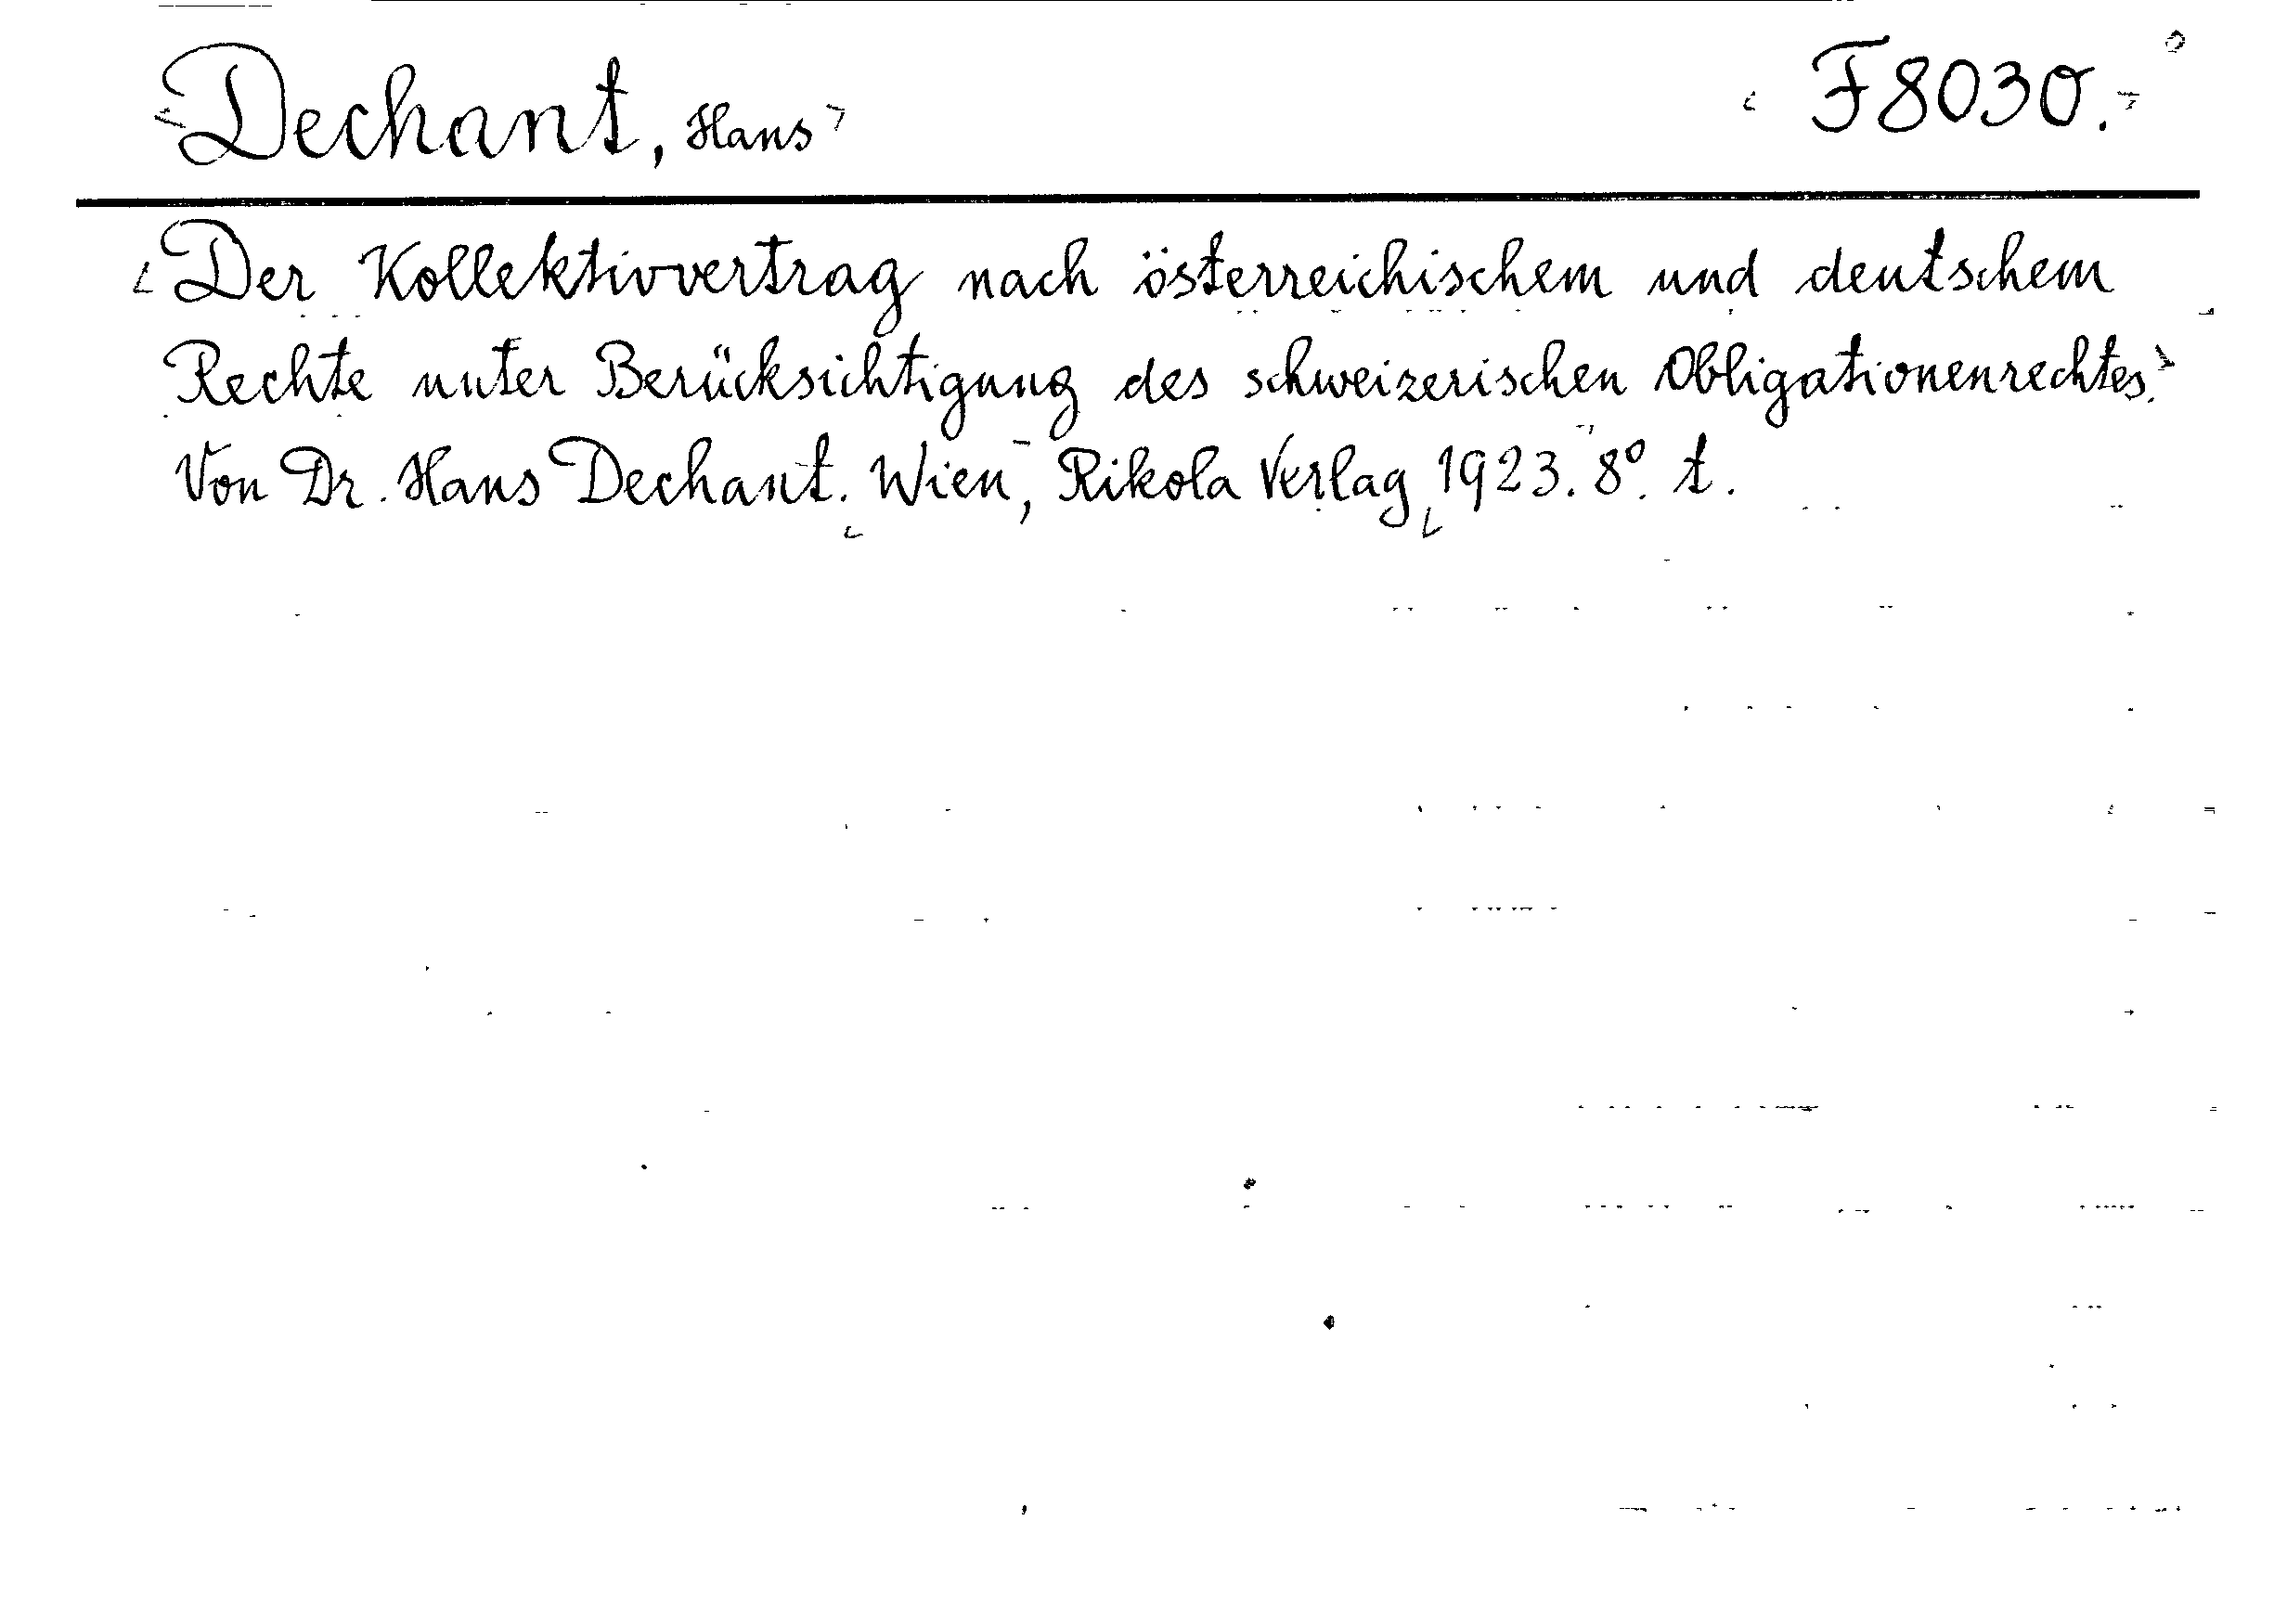 Dechant, Hans F8030.
Der Kollektivvertrag nach österreichischem und deutschem
Rechte unter Berücksichtigung des schweizerischen Obligationenrechtes.
Von Dr. Hans Dechant. Wien, Rikola Verlag, 1923. 8°. t.